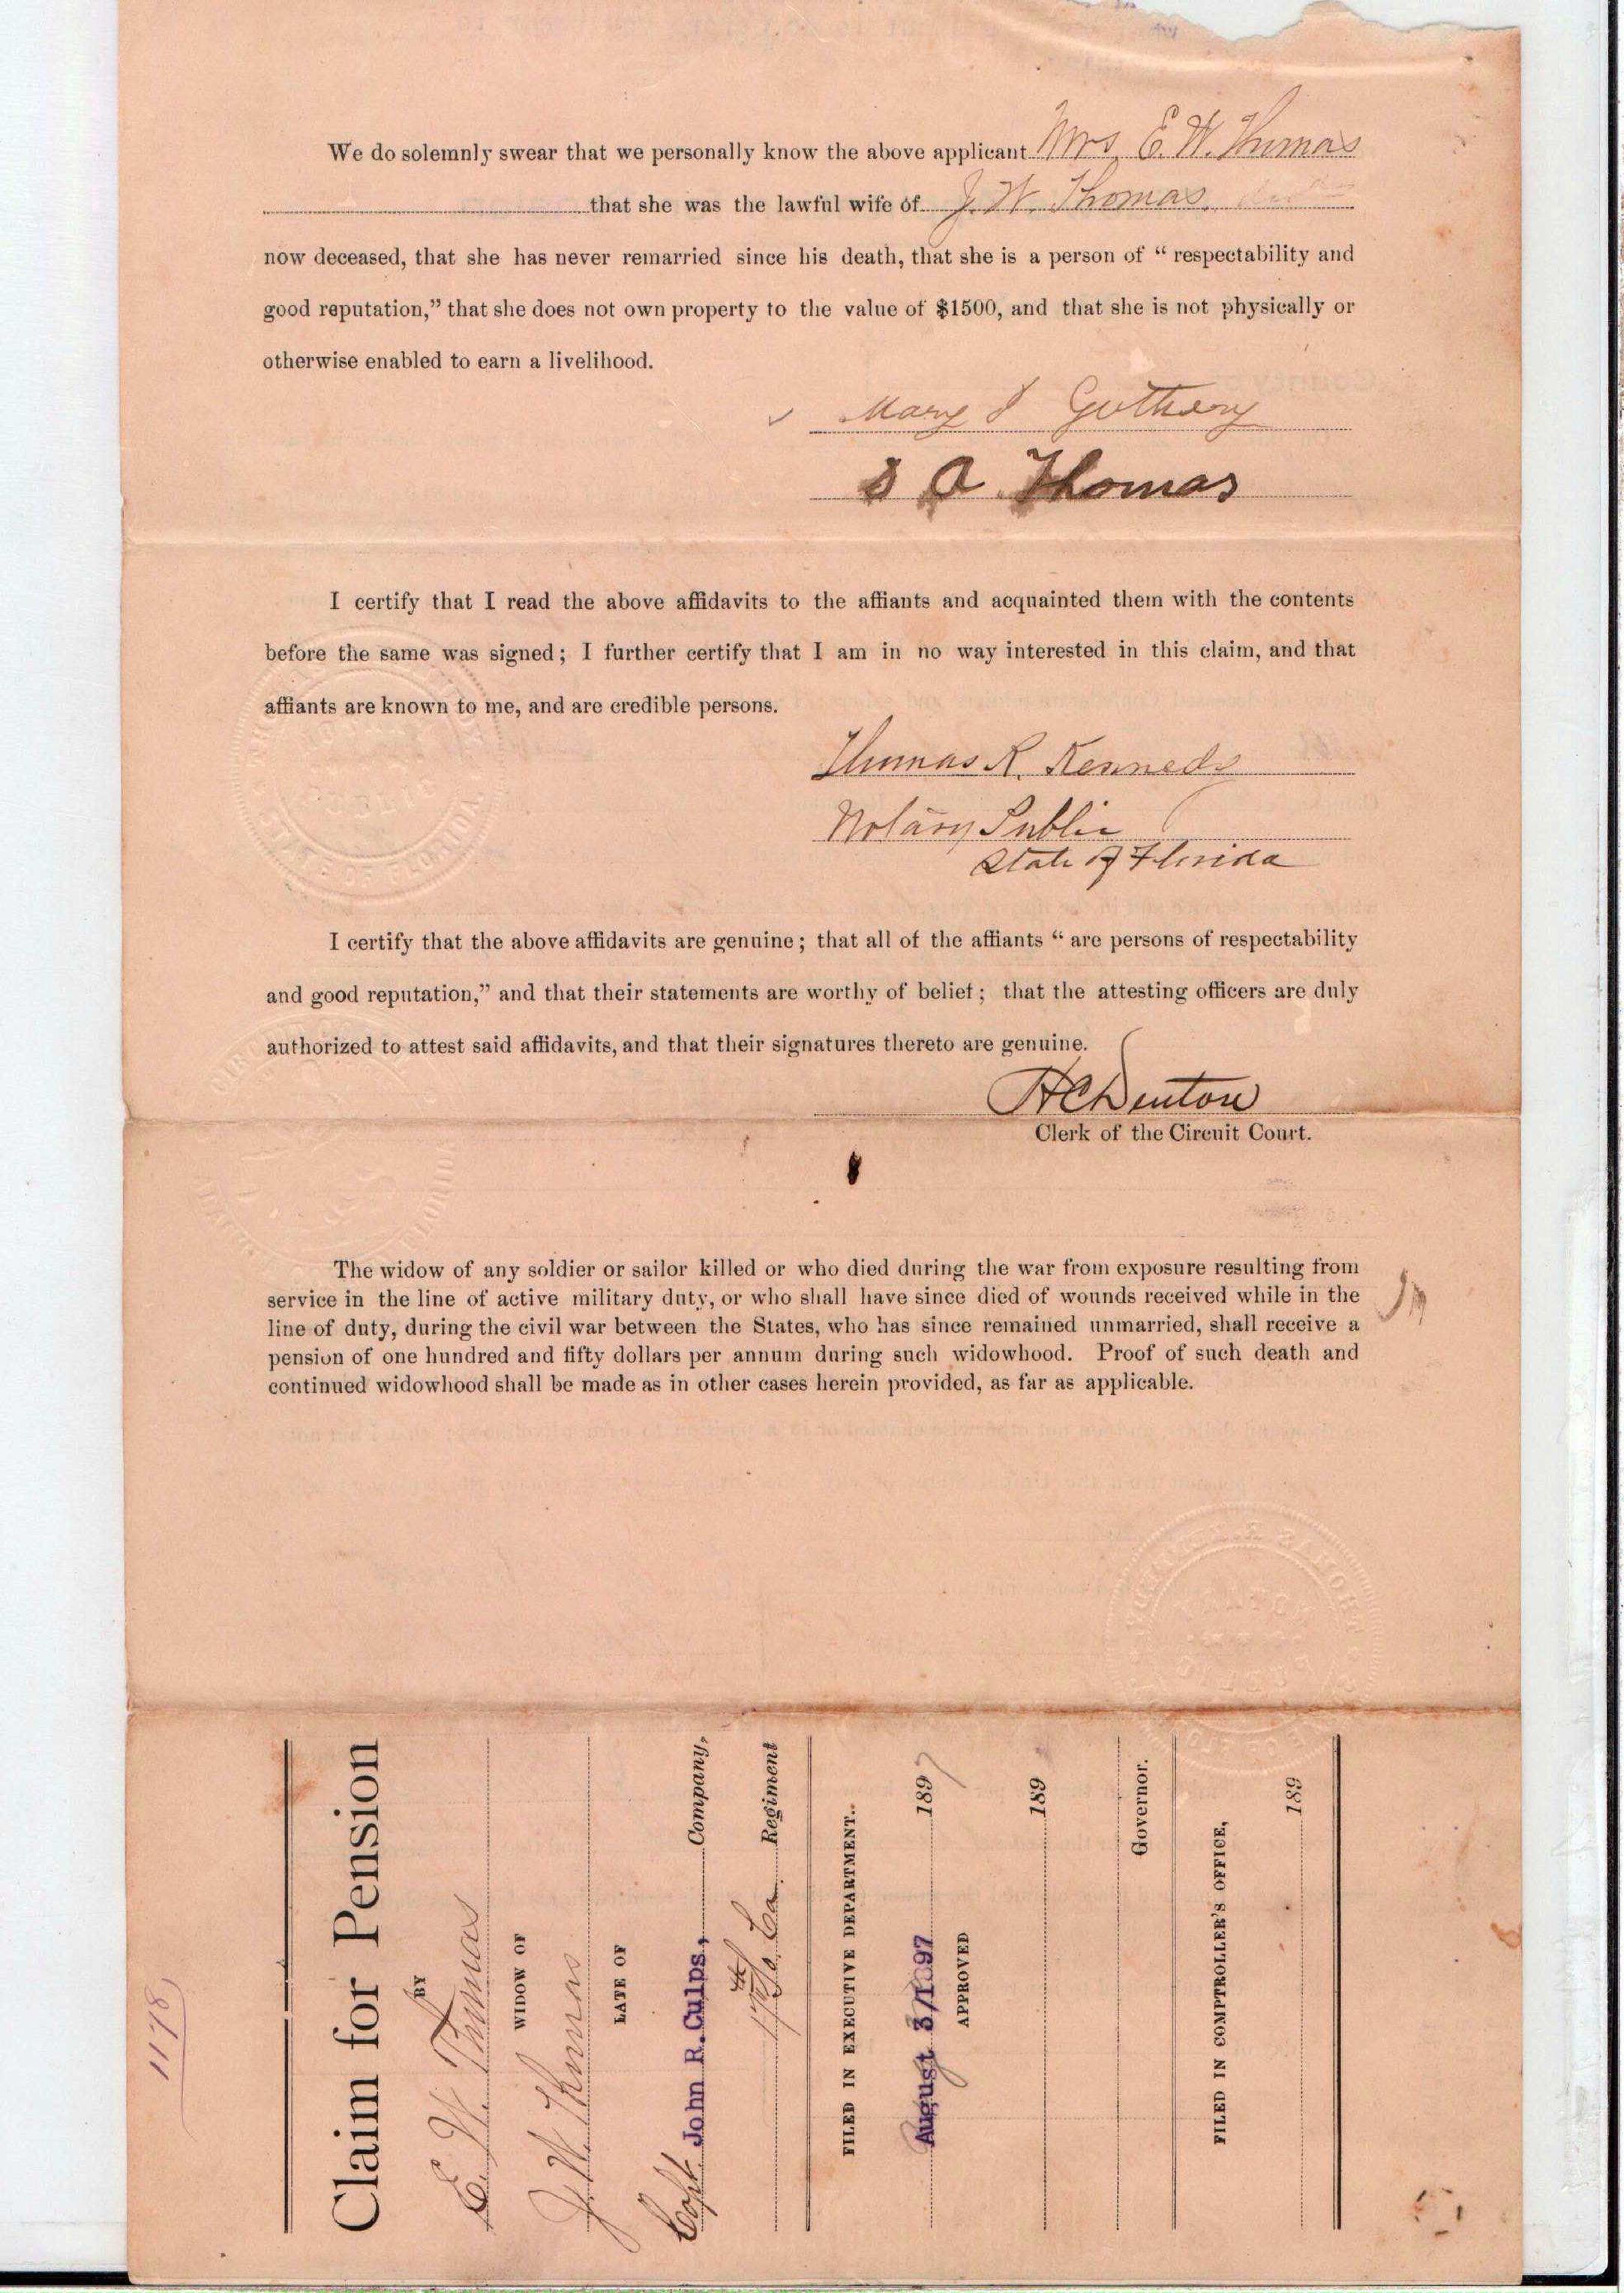 We do solemnly swear that we personally know the above applicant Mrs E. W. Thomas
that she was the lawful wife of J. W. Thomas
now deceased, that she has never remarried since his death, that she is a person of “ respectability and
good reputation,” that she does not own property to the value of $1500, and that she is not physically or
otherwise enabled to earn a livelihood.
Mary J Guthery
S A Thomas
I certify that I read the above affidavits to the affiants and acquainted them with the contents
before the same was signed; I further certify that I am in no way interested in this claim, and that
affiants are known to me, and are credible persons.
Thomas R. Kennedy
Notary Public
State of Florida
I certify that the above affidavits are genuine; that all of the affiants “ are persons of respectability
and good reputation,” and that their statements are worthy of belief; that the attesting officers are duly
authorized to attest said affidavits, and that their signatures thereto are genuine.
H C Denton
Clerk of the Circuit Court.
The widow of any soldier or sailor killed or who died during the war from exposure resulting from
service in the line of active military duty, or who shall have since died of wounds received while in the
line of duty, during the civil war between the States, who has since remained unmarried, shall receive a
pension of one hundred and fifty dollars per annum during such widowhood. Proof of such death and
continued widowhood shall be made as in other cases herein provided, as far as applicable.
1178
Claim for Pension
BY
E. W. Thomas
WIDOW OF
J. W. Thomas
LATE OF
Capt. John R. Culps, Company,
17th So. Ca Regiment
FILED IN EXECUTIVE DEPARTMENT.
August 3/1897 1897
APPROVED
189
Governor.
FILED IN COMPTROLLER'S OFFICE,
189